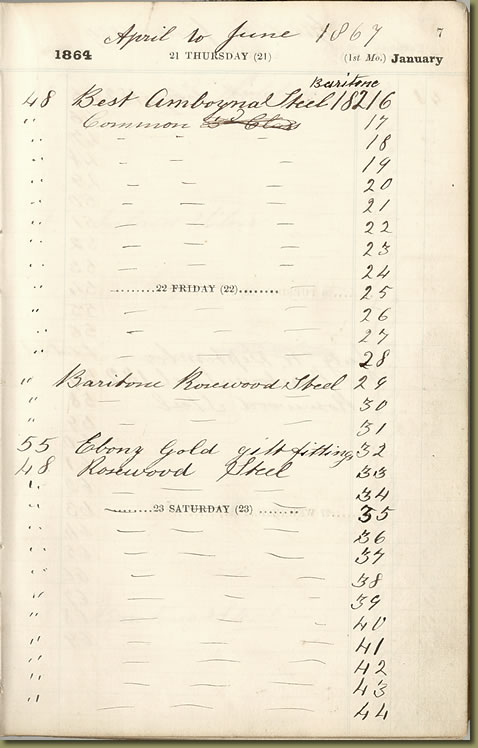 April to June 1867 7
1864 21 THURSDAY (21) (1st Mo.) January
Baritone
48 Best Amboyna Steel 18216
" Common 17
" — — — 18
" — — — 19
" — — — 20
" — — — 21
" — — — 22
" — — — 23
" — — — 24
" 22 FRIDAY (22) 25
" — — — 26
" — — — 27
" — — — 28
" Baritone Rosewood Steel 29
" — — — 30
" — — — 31
55 Ebony Gold gilt fittings 32
48 Rosewood Steel 33
" — — — 34
" 23 SATURDAY (23) 35
" — — — 36
" — — — 37
" — — — 38
" — — — 39
" — — — 40
" — — — 41
" — — — 42
" — — — 43
" — — — 44